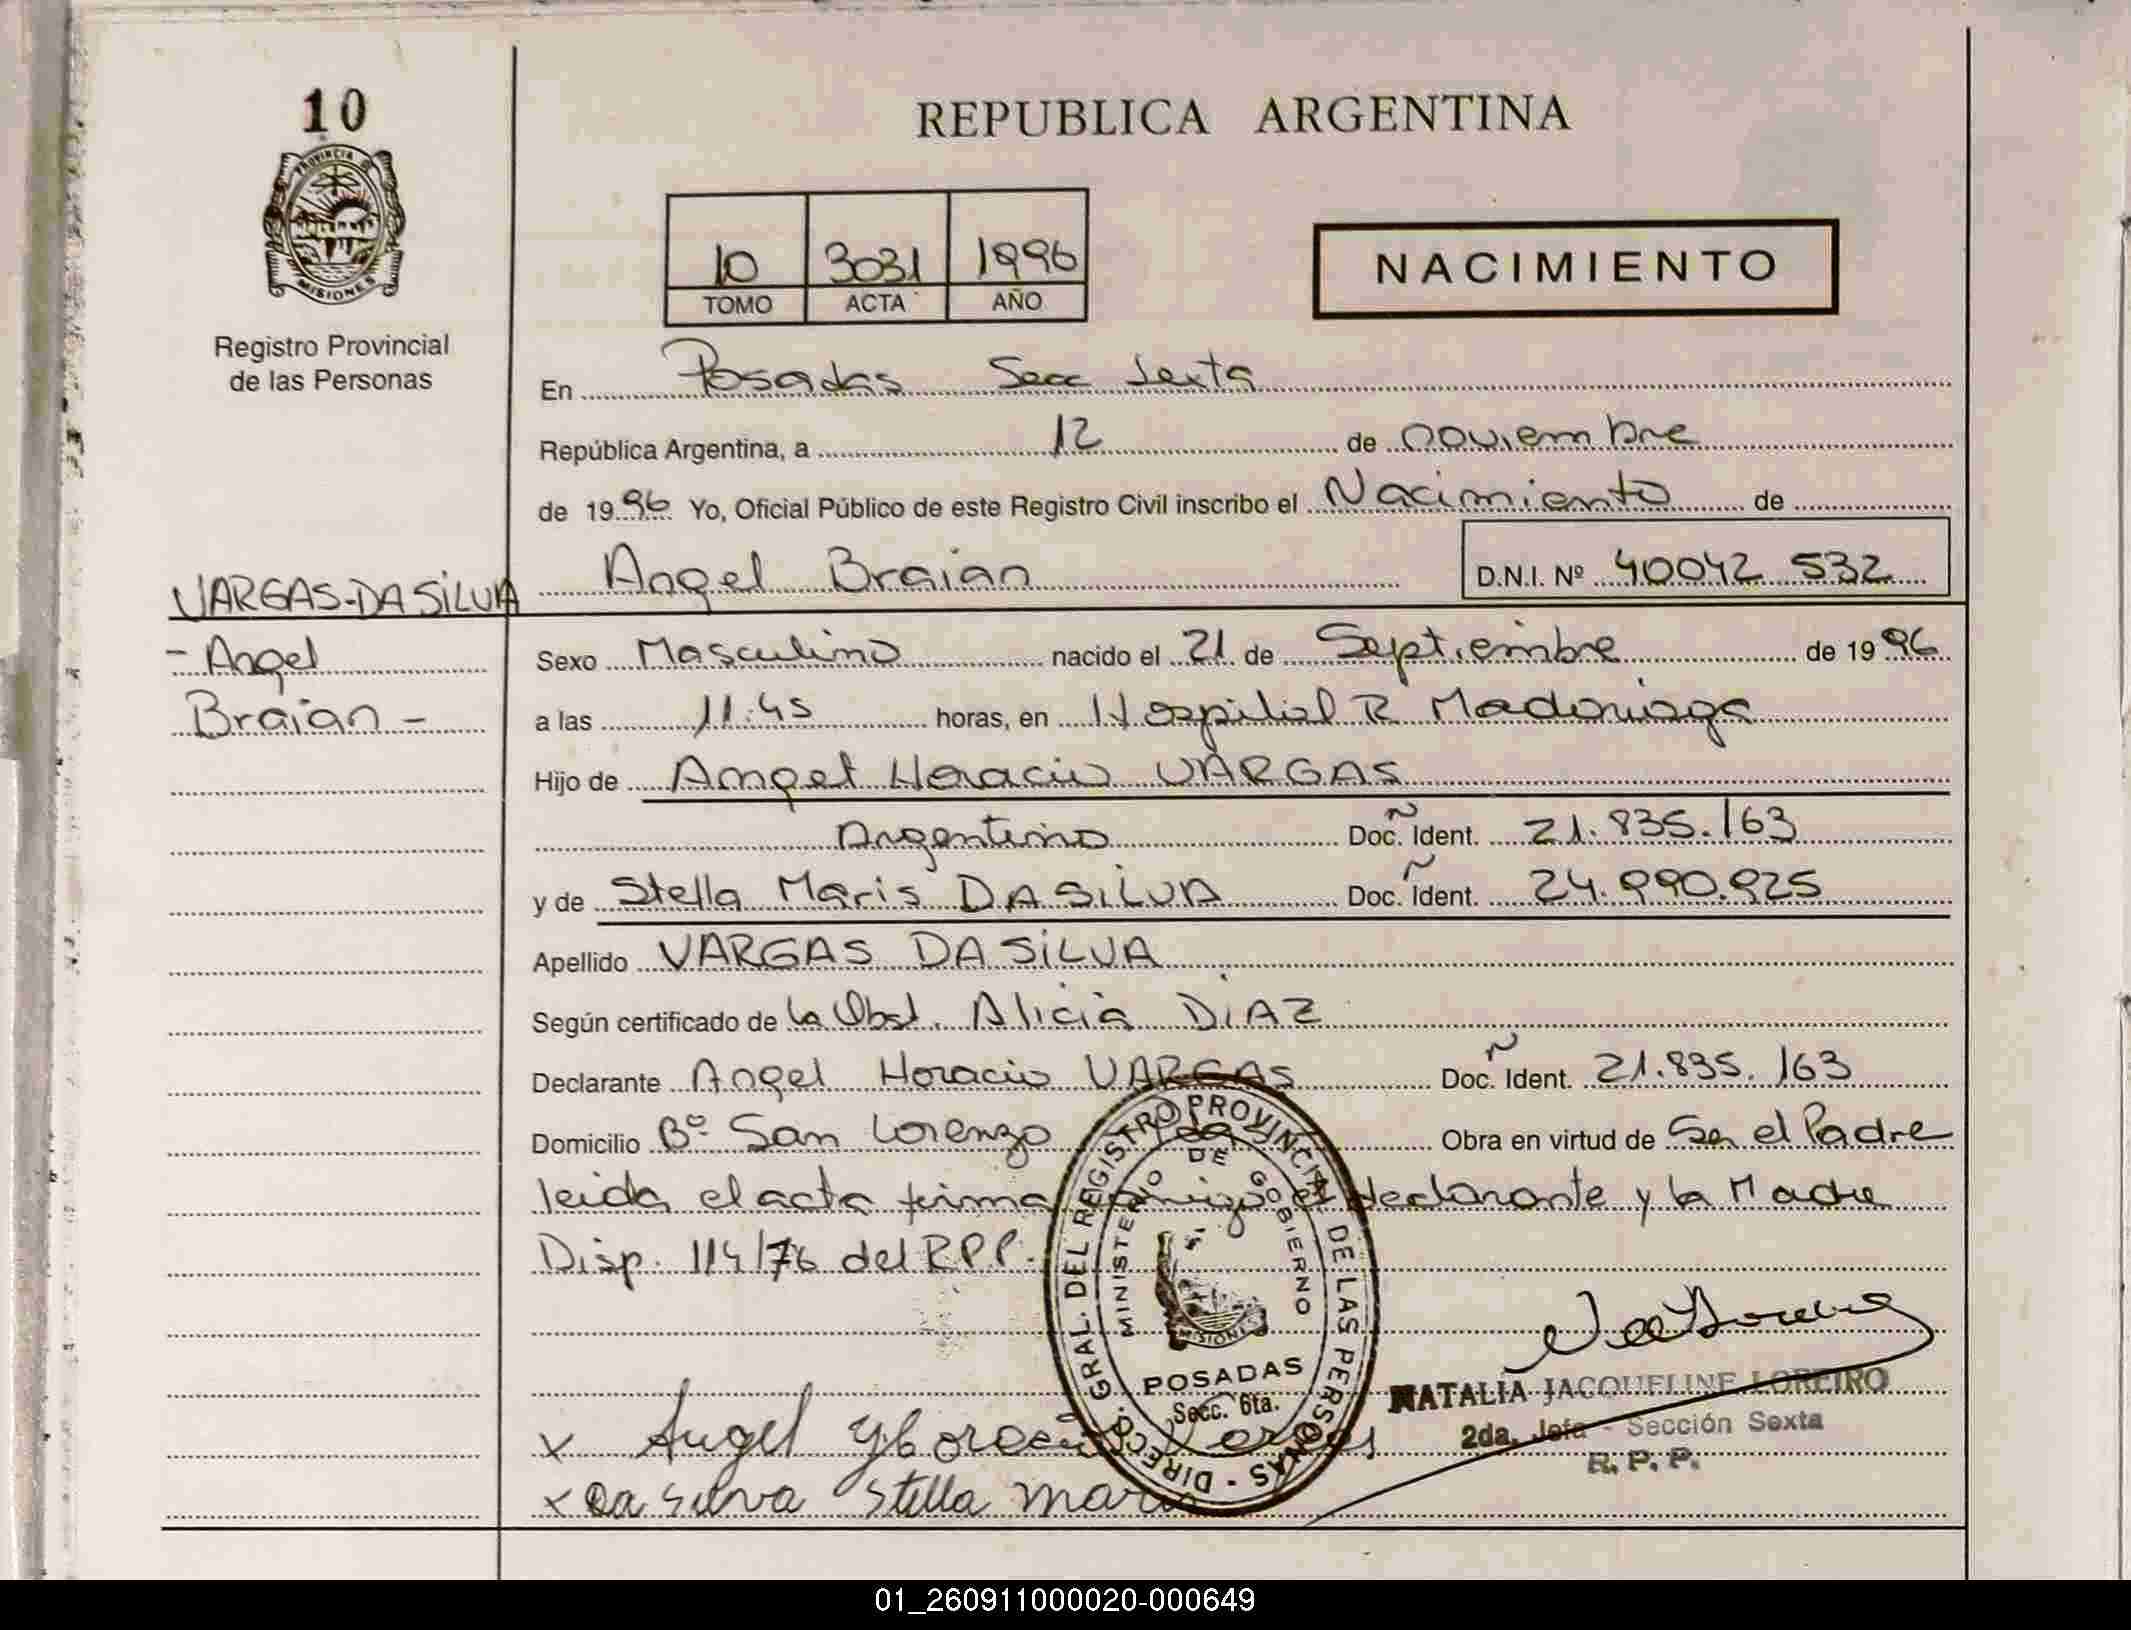 10
PROVINCIA D
MISIONES
Registro Provincial
de las Personas
REPUBLICA ARGENTINA
10 3031 1996
TOMO ACTA AÑO
NACIMIENTO
En Posadas Secc Sexta
República Argentina, a 12 de noviembre
de 1996 Yo, Oficial Público de este Registro Civil inscribo el Nacimiento de
Angel Braian D.N.I. Nº 40042 532
VARGAS-DA SILVA
- Angel
Braian -
Sexo Masculino nacido el 21 de Septiembre de 1996
a las 11:45 horas, en Hospital R Madariaga
Hijo de Angel Horacio VARGAS
Argentino Doc. Ident. 21.835.163
y de Stella Maris DA SILVA Doc. Ident. 24.990.925
Apellido VARGAS DA SILVA
Según certificado de la Obst. Alicia DIAZ
Declarante Angel Horacio VARGAS Doc. Ident. 21.835.163
Domicilio Bº San Lorenzo Obra en virtud de Ser el Padre
leida el acta firma el declarante y la Madre
Disp. 114/76 del R.P.P.
DIRECC. GRAL. DEL REGISTRO PROVINCIAL DE LAS PERSONAS
MINISTERIO DE GOBIERNO
MISIONES
POSADAS
Secc. 6ta.
NATALIA JACQUELINE LOREIRO
2da. Jefa - Sección Sexta
R. P. P.
x Angel
x Da Silva Stella Maris
01_260911000020-000649